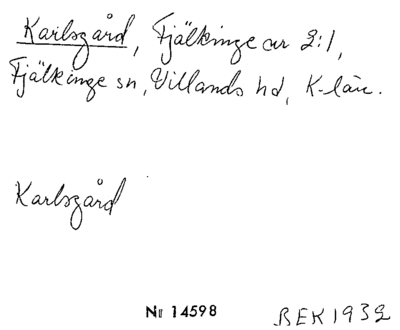 Karlsgård, Fjälkinge av 2:1,
Fjälkinge sn, Villands hd, K-län.
Karlsgård
Nr 14598
BEK1932